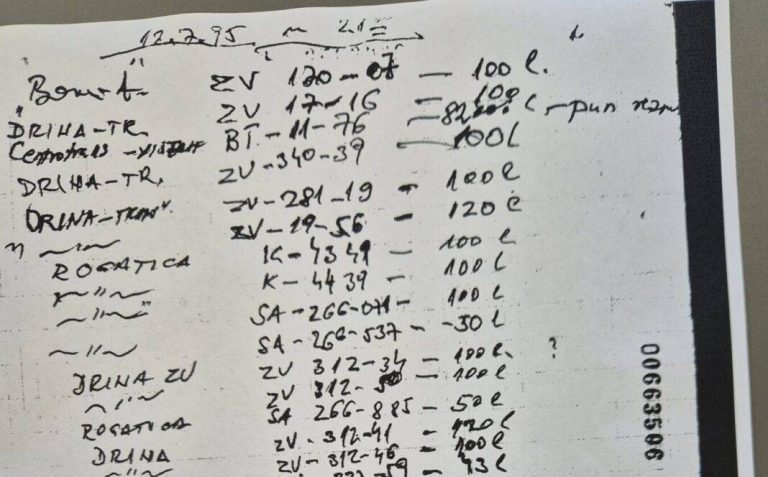 12.7.95 u 21
ZV 170-07 — 100 l.
ZV 17-16 — 100
DRINA-TR. BT-11-76 — 82 l — pun
Centrotrans ZV-340-39 — 100 l
DRINA-TR. ZV-281-19 — 100 l
DRINA-TRANS ZV-19-56 — 120 l
—"— K-4349 — 100 l
ROGATICA K-4439 — 100 l
—"— SA-266-071 — 100 l
—"— SA-266-537 — 30 l
—"— ZV 312-34 — 100 l. ?
DRINA ZV ZV 312-50 — 100 l
—"— SA 266-885 — 50 l
ROGATICA ZV-312-41 — 120 l
DRINA ZV-312-46 — 100 l
—"— 59 — 43 l
00663506